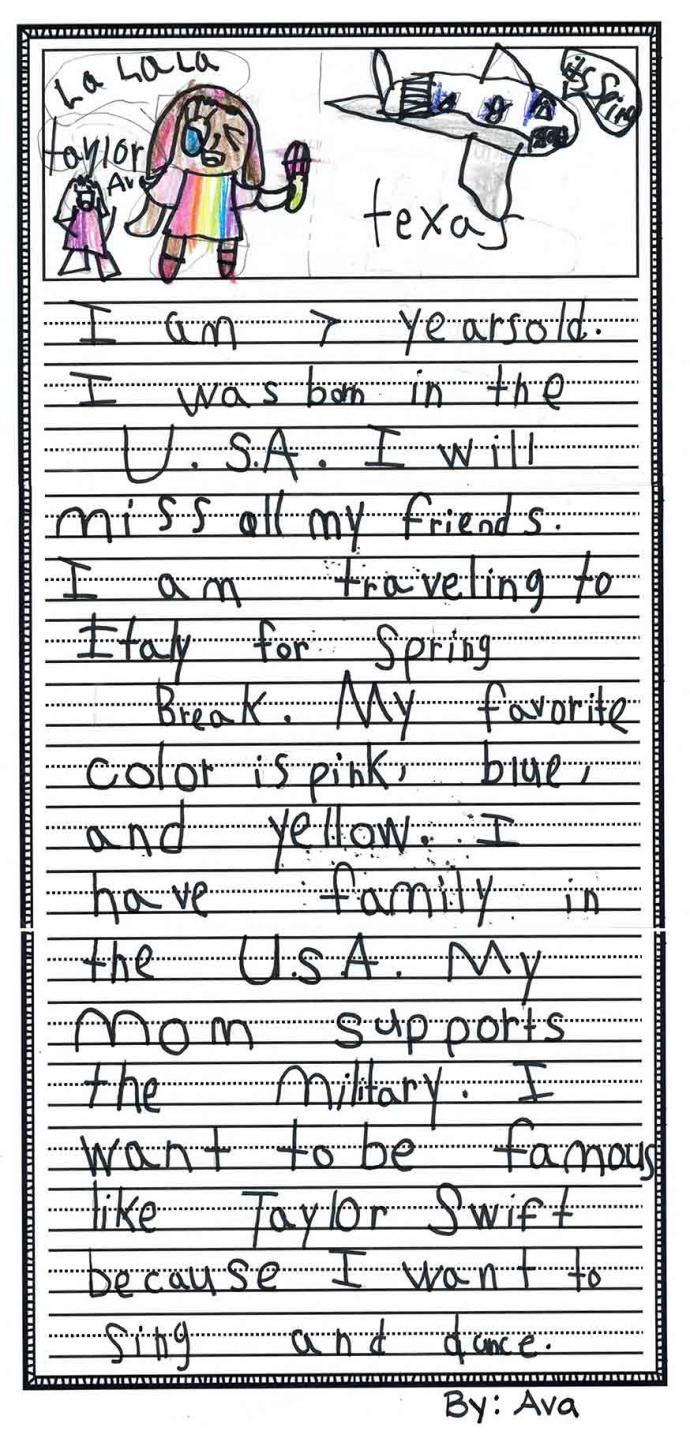 La LaLa
taylor
Av
its Spring
texas
I am 7 yearsold.
I was born in the
U.S.A. I will
miss all my friends.
I am traveling to
Italy for Spring
Break. My favorite
color is pink, blue,
and yellow. I
have family in
the U.S.A. My
Mom supports
the military. I
want to be famous
like Taylor Swift
because I want to
sing and dance.
By: Ava